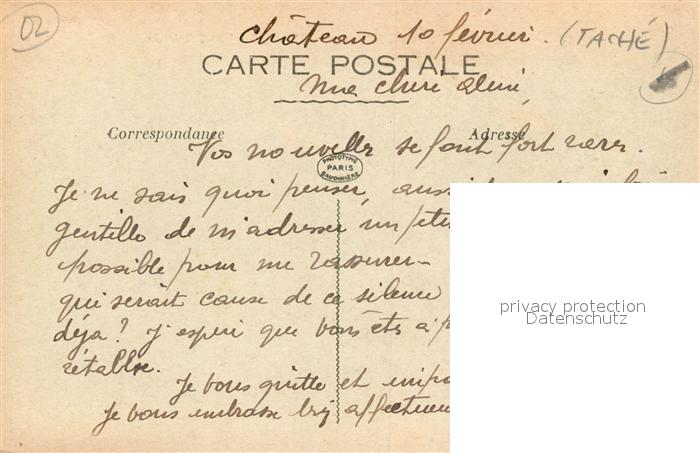 02
Château 10 février. (TACHÉ)
CARTE POSTALE
Ma cheri
Correspondance
Adresse
Vos nouvelles se font fort rares.
PHOTOTYPIE
PARIS
BAUDINIÈRE
Je ne sais quoi penser, aussi
gentille de m'adresser un petit
possible pour me rassurer -
qui serait cause de ce silence
déja? J'esperi que vous êts à
rétablie.
Je vous quitte et
Je vous embrasse bien affectueu
privacy protection
Datenschutz